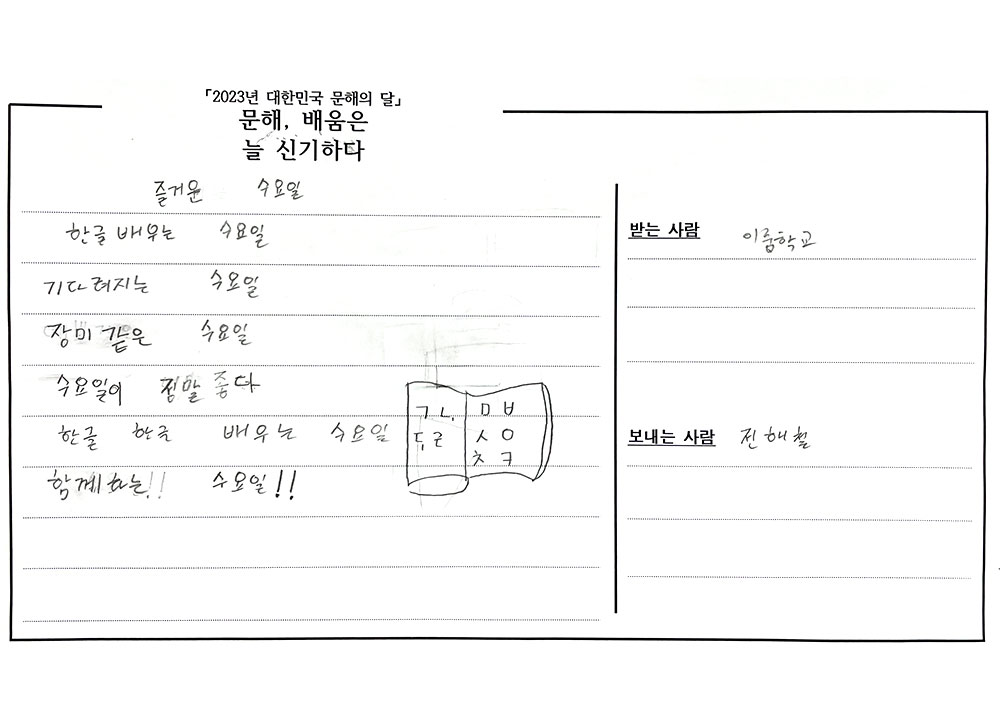 「2023년 대한민국 문해의 달」
문해, 배움은
늘 신기하다
즐거운 수요일
한글 배우는 수요일
기다려지는 수요일
장미 같은 수요일
수요일이 정말 좋다
한글 한글 배우는 수요일
함께하는!! 수요일!!
ㄱ ㄴ
ㄷ ㄹ
ㅁ ㅂ
ㅅ ㅇ
ㅊ ㅋ
받는 사람 이룸학교
보내는 사람 진해철